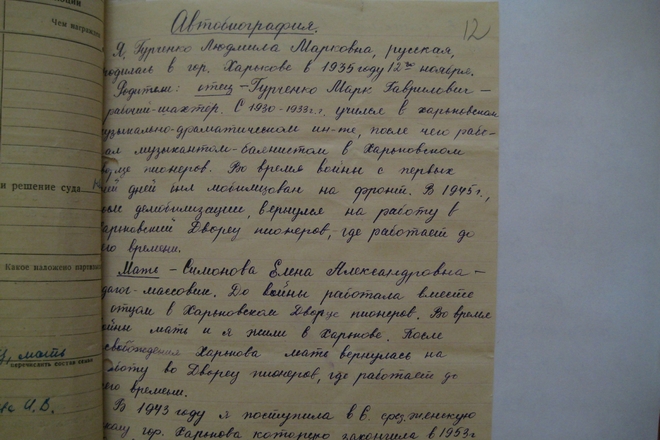 Автобиография.
12
Я, Гурченко Людмила Марковна, русская,
родилась в гор. Харькове в 1935 году 12го ноября.
Родители: отец – Гурченко Марк Гаврилович –
рабочий-шахтер. С 1930-1933г.г. учился в харьковском
музыкально-драматическом ин-те, после чего рабо-
тал музыкантом-баянистом в Харьковском
дворце пионеров. Во время войны с первых
дней был мобилизован на фронт. В 1945г.,
после демобилизации, вернулся на работу в
Харьковский Дворец пионеров, где работает до
сего времени.
Мать – Симонова Елена Александровна –
педагог-массовик. До войны работала вместе
с отцом в Харьковском Дворце пионеров. Во время
войны мать и я жили в Харькове. После
освобождения Харькова мать вернулась на
работу во Дворец пионеров, где работает до
сего времени.
В 1943 году я поступила в 6. сред. женскую
школу гор. Харькова которую закончила в 1953г
Чем награжден
и решение суда
Какое наложено партийн
мать
перечислить состав семьи
И. В.